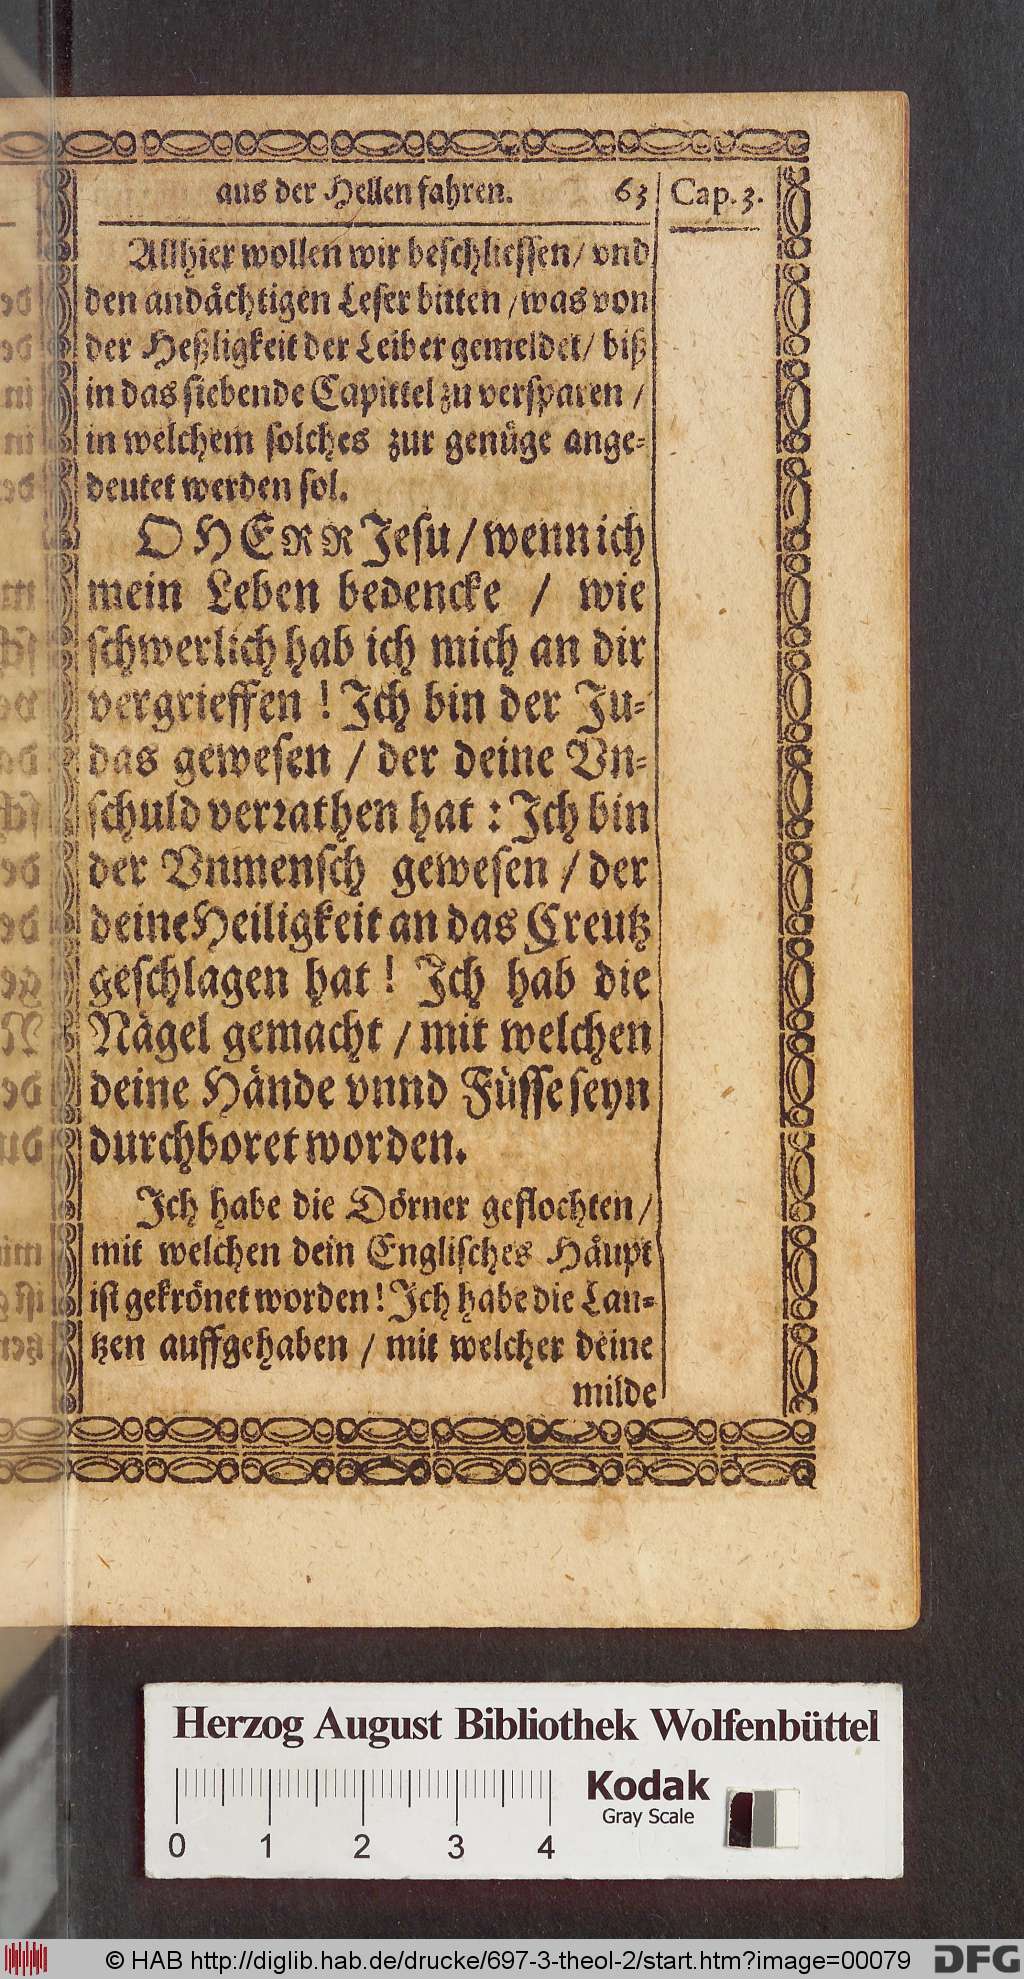 aus der Hellen fahren. 63 Cap. 3.
Allhier wollen wir beschliessen / vnd
den andåchtigen Leser bitten / was von
der Heßligkeit der Leiber gemeldet / biß
in das siebende Capittel zu versparen /
in welchem solches zur genůge ange-
deutet werden sol.
O HERR Jesu / wenn ich
mein Leben bedencke / wie
schwerlich hab ich mich an dir
vergrieffen! Ich bin der Ju-
das gewesen / der deine Vn-
schuld verrathen hat: Ich bin
der Vnmensch gewesen / der
deine Heiligkeit an das Creutz
geschlagen hat! Ich hab die
Någel gemacht / mit welchen
deine Hånde vnnd Füsse seyn
durchboret worden.
Ich habe die Dörner geflochten /
mit welchen dein Englisches Håupt
ist gekrönet worden! Ich habe die Lan-
tzen auffgehaben / mit welcher deine
milde
Herzog August Bibliothek Wolfenbüttel
Kodak
Gray Scale
0 1 2 3 4
© HAB http://diglib.hab.de/drucke/697-3-theol-2/start.htm?image=00079
DFG